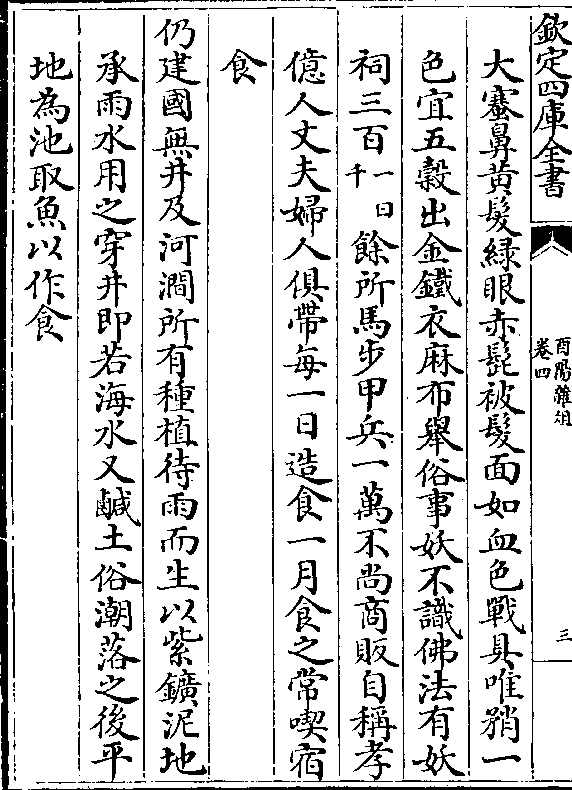 欽定四庫全書
酉陽雜俎
卷四
三
大蹇鼻黄髮緑眼赤髭被髮面如血色戰具唯矟一
色宜五穀出金鐵衣麻布舉俗事妖不識佛法有妖
祠三百一曰千餘所馬步甲兵一萬不尚商販自稱孝
億人丈夫婦人俱帶每一日造食一月食之常喫宿
食
仍建國無井及河澗所有種植待雨而生以紫鑛泥地
承雨水用之穿井即若海水又鹹土俗潮落之後平
地為池取魚以作食